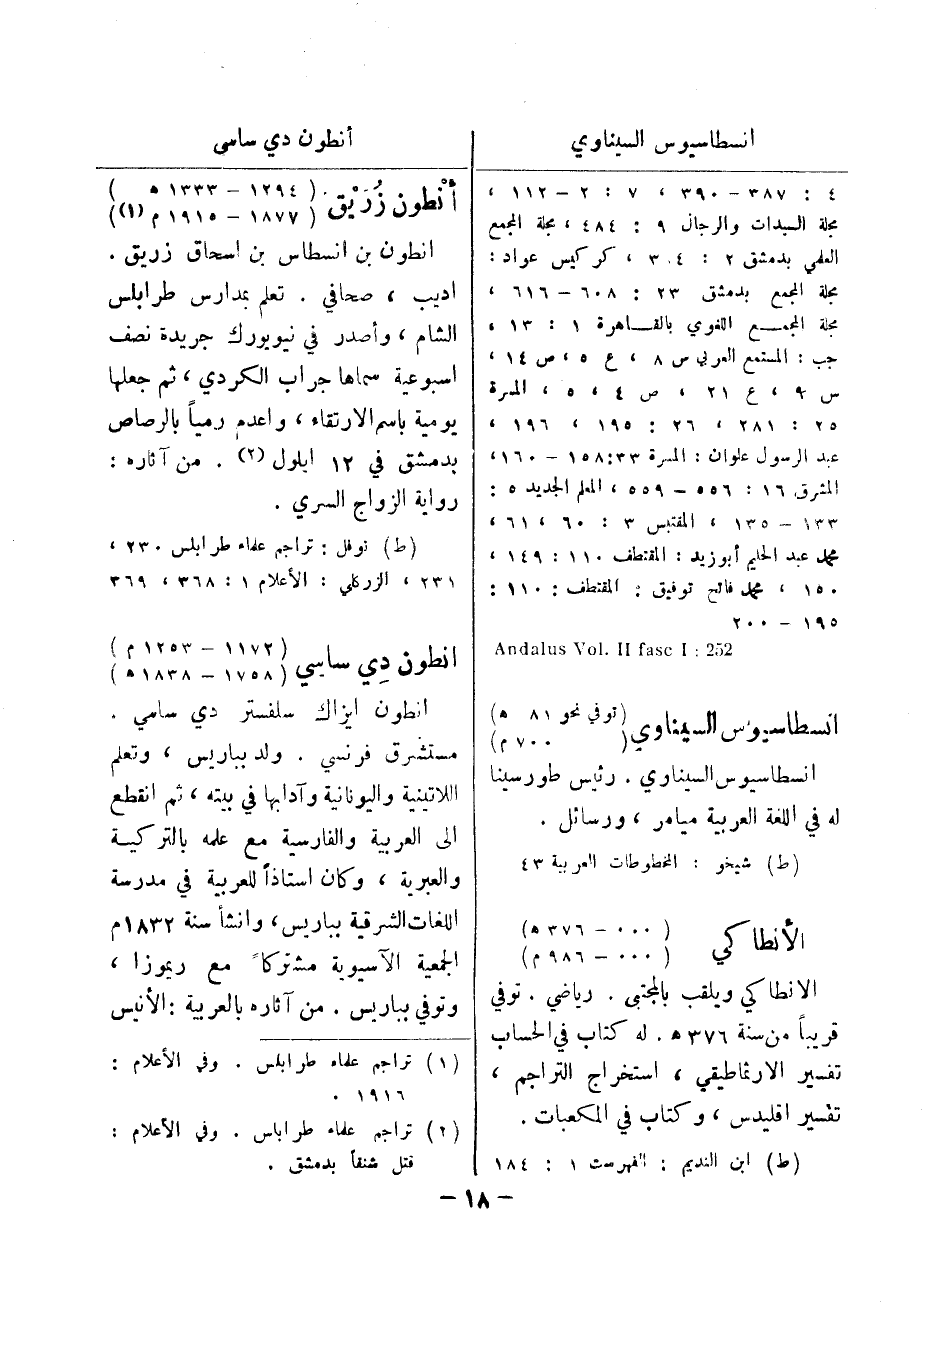 انسطاسيوس السيناوي
٤ : ٣٨٧ – ٣٩٠ ، ٧ : ٢ – ١١٢ ،
مجلة السيدات والرجال ٩ : ٤٨٤ ، مجلة المجمع
العلمي بدمشق ٢ : ٣٠٤ ، كركيس عواد :
مجلة المجمع بدمشق ٢٣ : ٦٠٨ – ٦١٦ ،
مجلة المجمع اللغوي بالقاهرة ١ : ١٣ ،
جب : المستمع العربي س ٨ ، ع ٥ ، ص ١٤ ،
س ٩ ، ع ٢١ ، ص ٤ ، ٥ ، المسرة
٢٥ : ٢٨١ ، ٢٦ : ١٩٥ ، ١٩٦ ،
عبد الرسول علوان : المسرة ٣٣:١٥٨ – ١٦٠ ،
المشرق ١٦ : ٥٥٦ – ٥٥٩ ، المعلم الجديد ٥ :
١٣٣ – ١٣٥ ، المقتبس ٣ : ٦٠ ، ٦١ ،
محمد عبد الحليم أبوزيد : المقتطف ١١٠ : ١٤٩ ،
١٥٠ ، محمد فاتح توفيق : المقتطف : ١١٠ :
١٩٥ – ٢٠٠
Andalus Vol. II fasc I : 252
انسطاسيوس السيناوي (توفي نحو ٨١ ه)
(٧٠٠ م)
انسطاسيوس السيناوي . رئيس طورسينا
له في اللغة العربية ميامر ، ورسائل .
(ط) شيخو : المخطوطات العربية ٤٣
الأنطاكي (٠٠٠ – ٣٧٦ ه)
(٠٠٠ – ٩٨٦ م)
الانطاكي ويلقب بالمجتبى . رياضي . توفي
قريباً من سنة ٣٧٦ ه . له كتاب في الحساب
تفسير الارثماطيقي ، استخراج التراجم ،
تفسير اقليدس ، وكتاب في المكعبات .
(ط) ابن النديم : الفهرست ١ : ١٨٤
أنطون دي ساسى
أنطون زُرَيْق (١٢٩٤ – ١٣٣٣ ه)
(١٨٧٧ – ١٩١٥ م (١))
انطون بن انسطاس بن اسحاق زريق .
اديب ، صحافي . تعلم بمدارس طرابلس
الشام ، وأصدر في نيويورك جريدة نصف
اسبوعية سماها جراب الكردي ، ثم جعلها
يومية باسم الارتقاء ، واعدم رمياً بالرصاص
بدمشق في ١٢ ايلول (٢) . من آثاره :
رواية الزواج السري .
(ط) نوفل : تراجم علماء طرابلس ٢٣٠ ،
٢٣١ ، الزركلي : الأعلام ١ : ٣٦٨ ، ٣٦٩
انطون دِي ساسي (١١٧٢ – ١٢٥٣ م)
(١٧٥٨ – ١٨٣٨ ه)
انطون ايزاك سلفستر دي سامي .
مستشرق فرنسي . ولد بباريس ، وتعلم
اللاتينية واليونانية وآدابها في بيته ، ثم انقطع
الى العربية والفارسية مع علمه بالتركية
والعبرية ، وكان استاذاً للعربية في مدرسة
اللغات الشرقية بباريس ، وانشأ سنة ١٨٣٢م
الجمعية الآسيوية مشتركاً مع ريموزا ،
وتوفي بباريس . من آثاره بالعربية : الأنيس
(١) تراجم علماء طرابلس . وفي الأعلام :
١٩١٦ .
(٢) تراجم علماء طرابلس . وفي الأعلام :
قتل شنقاً بدمشق .
– ١٨ –